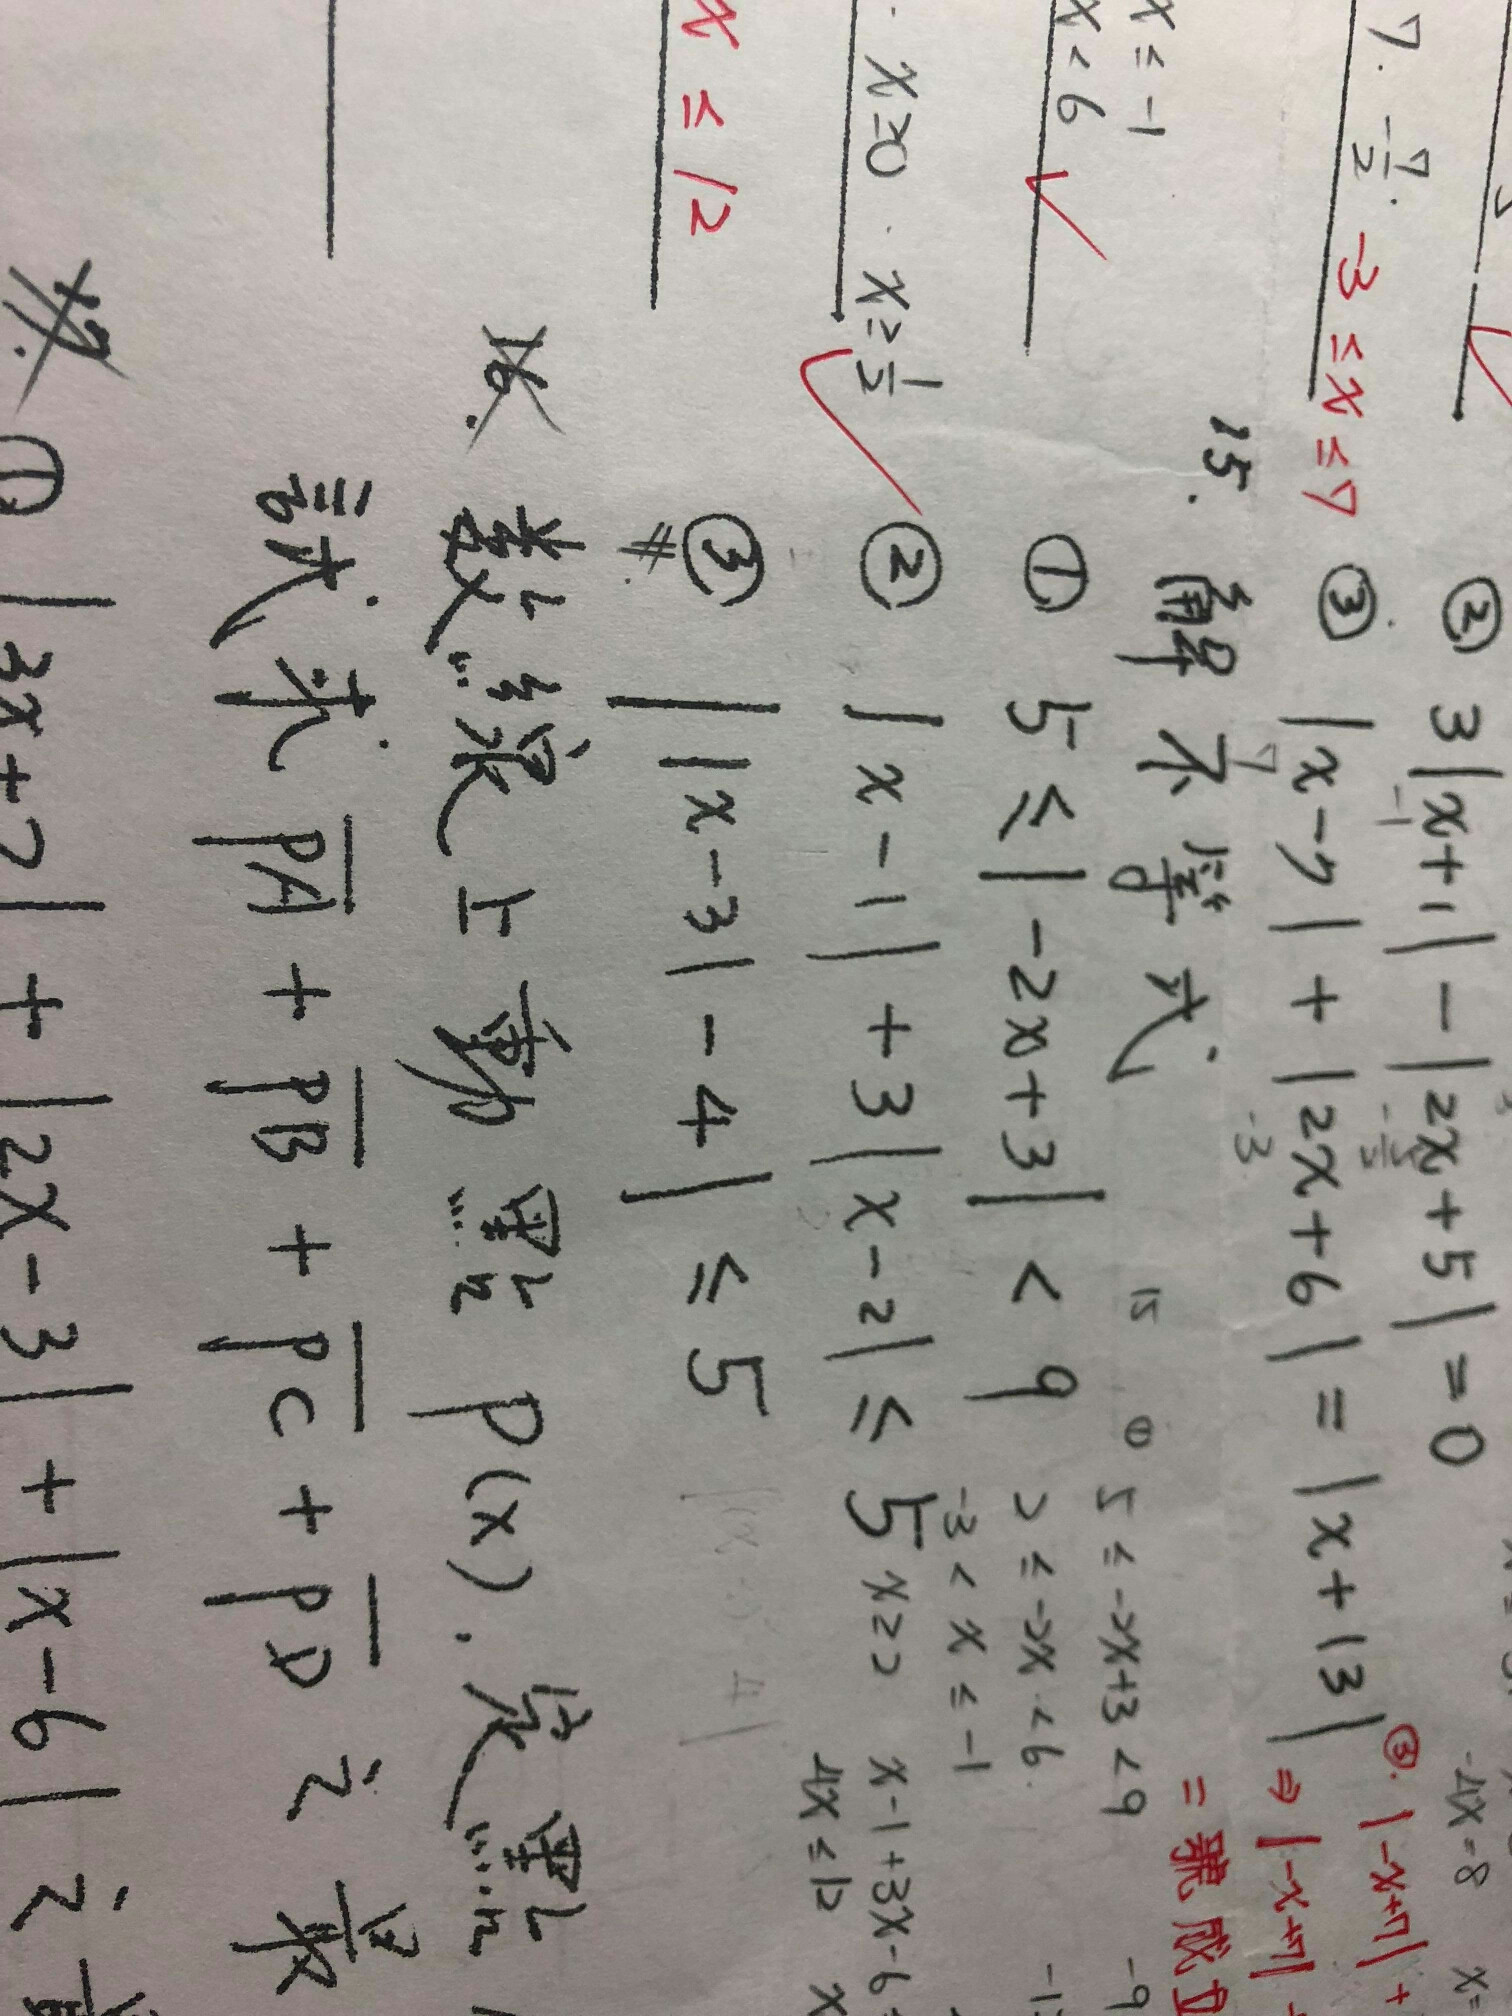 ② 3|x+1|-|2x+5|=0
7. -7/2. -3≤x≤7
③ |x-7|+|2x+6|=|x+13|
③. |-x+7|+
⇒|-x+7|
=號成立
-4x=8
15. 解不等式
x≤-1
x<6
① 5≤|-2x+3|<9
15 ① 5≤-2x+3<9
2≤-2x<6
-3<x≤-1
x≥0. x≥1/2
② |x-1|+3|x-2|≤5
x≥2 x-1+3x-6
4x≤12
x≤12
③ ||x-3|-4|≤5
16. 數線上動點P(x).定點
試求 PA+PB+PC+PD之最
17. ① |3x+2|+|2x-3|+|x-6|之最